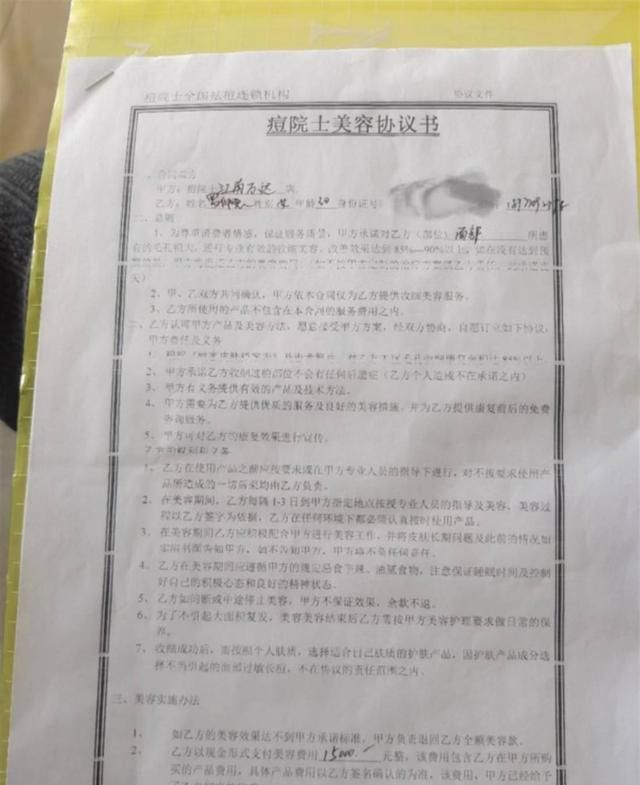 痘院士全国祛痘连锁机构 协议文件
痘院士美容协议书
甲方：痘院士江南万达店
乙方：姓名 性别 年龄30 身份证号：
二、总则
1、为尊重消费者情感，保证服务质量，甲方承诺对乙方（部位）面部 所患
有的毛孔粗大，进行专业有效的收细美容。改善效果达到85%—90%以上，如在没有达到预
天）
2、甲、乙双方共同确认，甲方依本合同仅为乙方提供收细美容服务。
3、乙方所使用的产品不包含在本合同的服务费用之内。
二、乙方认可甲方产品及美容方法，愿意接受甲方方案，经双方协商，自愿订立如下协议：
甲方责任及义务
2、甲方承诺乙方收细过的部位不会有任何后遗症（乙方个人造成不在承诺之内）
3、甲方有义务提供有效的产品及技术方法。
4、甲方需要为乙方提供优质的服务及良好的美容措施，并为乙方提供康复前后的免费
咨询服务。
5、甲方可对乙方的康复效果进行宣传。
乙方的权利和义务
1、乙方在使用产品之前应按要求或在甲方专业人员的指导下进行，对不按要求使用产
品所造成的一切后果均由乙方负责。
2、在美容期间，乙方每隔1-3日到甲方指定地点接受专业人员的指导及美容，美容过
程以乙方签字为依据，乙方在任何环境下都必须认真按时使用产品。
3、在美容期间乙方应积极配合甲方进行美容工作，并将皮肤长期问题及此前的情况如
实用书面告知甲方，如不告知甲方，甲方将不负任何责任。
4、乙方在美容期间应遵循甲方的规定忌食辛辣、油腻食物，注意保证睡眠时间及控制
好自己的积极心态和良好的精神状态。
5、乙方如间断或中途停止美容，甲方不保证效果，余款不退。
6、为了不引起大面积复发，美容美容结束后乙方需按甲方美容护理要求做日常的保
养。
7、收细成功后，需按照个人肤质，选择适合自己肤质的护肤产品，因护肤产品成分选
择不当引起的面部过敏长痘，不在协议的责任范围之内。
三、美容实施办法
1、如乙方的美容效果达不到甲方承诺标准，甲方负责退回乙方全额美容款。
2、乙方以现金形式支付美容费用15000.-元整，该费用包含乙方在甲方所购
买的产品费用，具体产品费用以乙方签名确认的为准，该费用，甲方已经给予